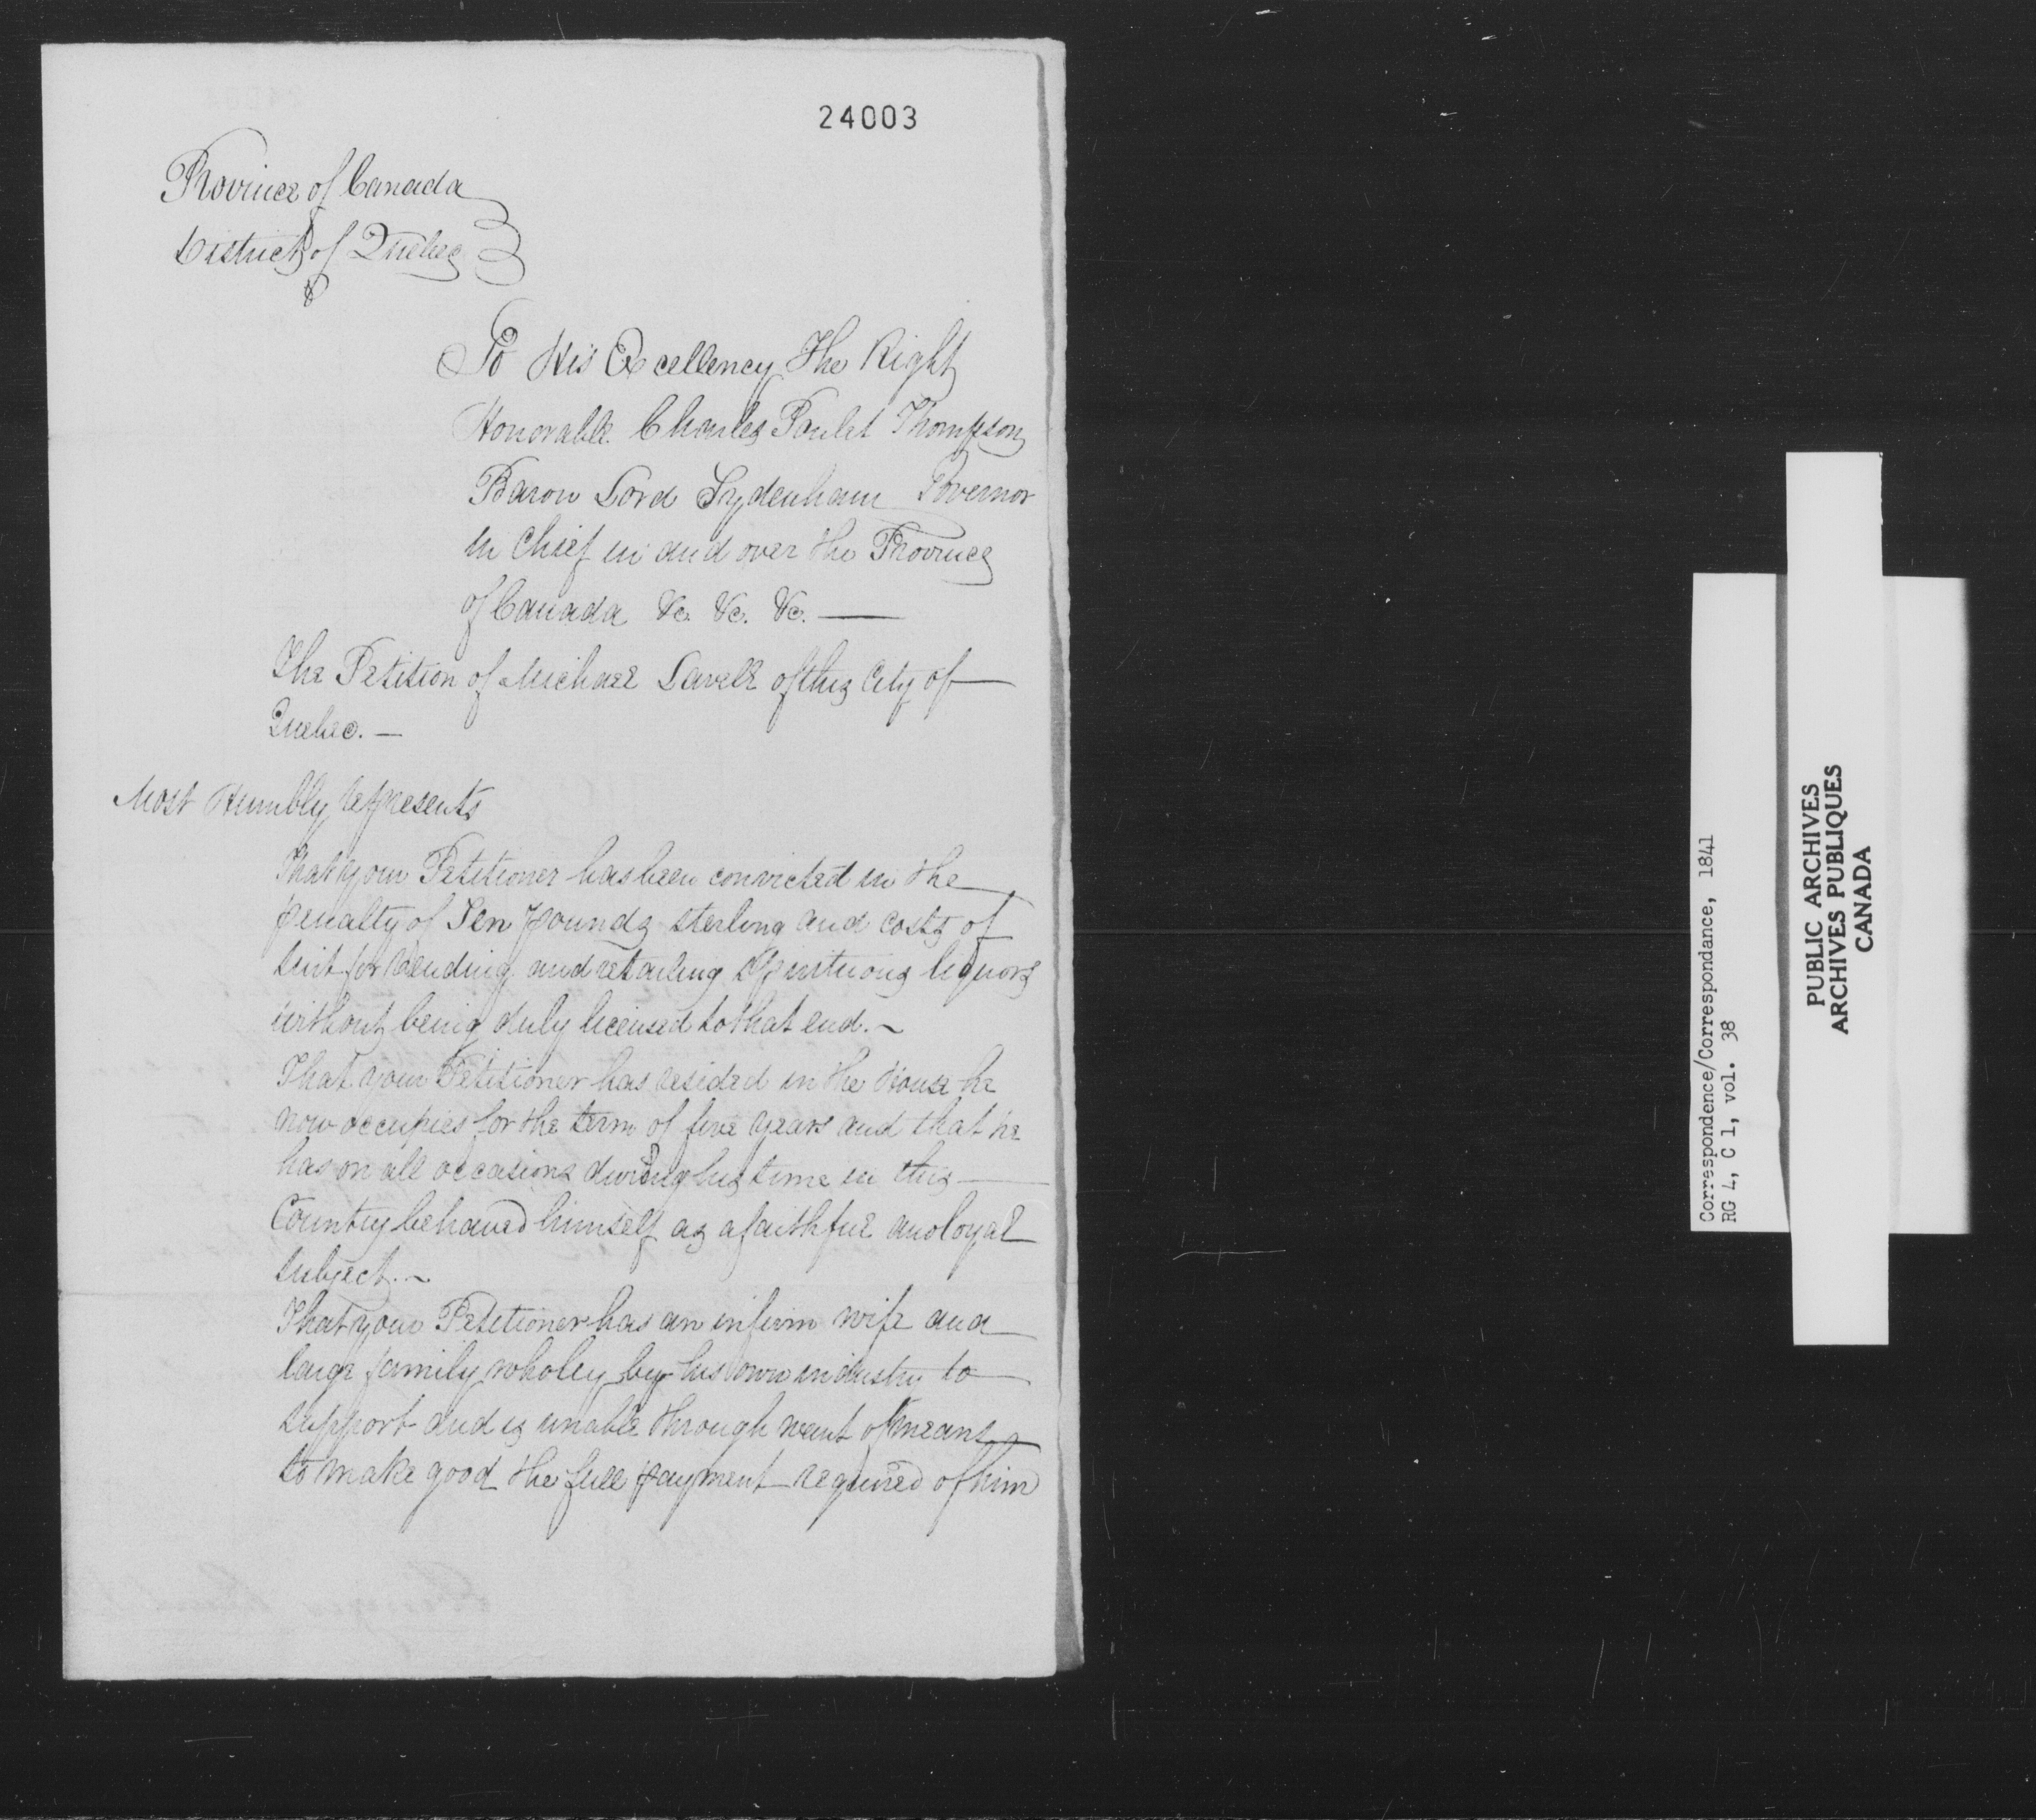 24003
Province of Canada
District of Quebec
To His Excellency The Right
Honorable Charles Poulet Thompson
Baron Lord Sydenham Governor
in Chief in and over the Province
of Canada &c. &c. &c. —
The Petition of Michael Lavell of this City of
Quebec. —
Most Humbly represents
That your Petitioner has been convicted in the
penalty of Ten pounds sterling and costs of
suit for vending and retailing spirituous liquors
without being duly licensed to that end. ~
That your Petitioner has resided in the House he
now occupies for the term of five years and that he
has on all occasions during his time in this —
Country behaved himself as a faithful and loyal
subject. ~
That your Petitioner has an infirm wife and
large family wholey by his own industry to
support and is unable through want of means
to make good the full payment required of him
Correspondence/Correspondance, 1841
RG 4, C 1, vol. 38
PUBLIC ARCHIVES
ARCHIVES PUBLIQUES
CANADA